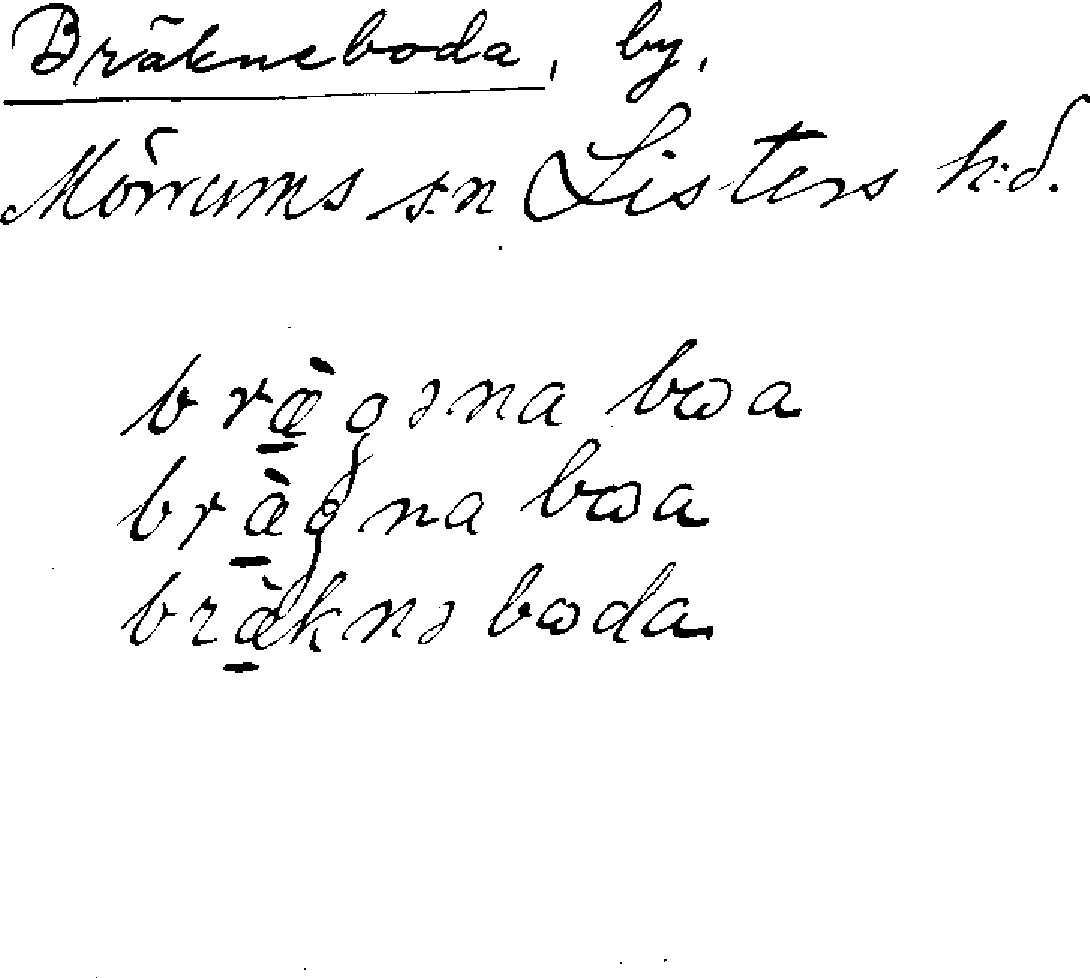 Bräkneboda, by.
Mörrums s:n Listers h:d.
bræ̠̀gəna bɷa
bræ̠̀gna bɷa
bræ̠̀knə bɷda